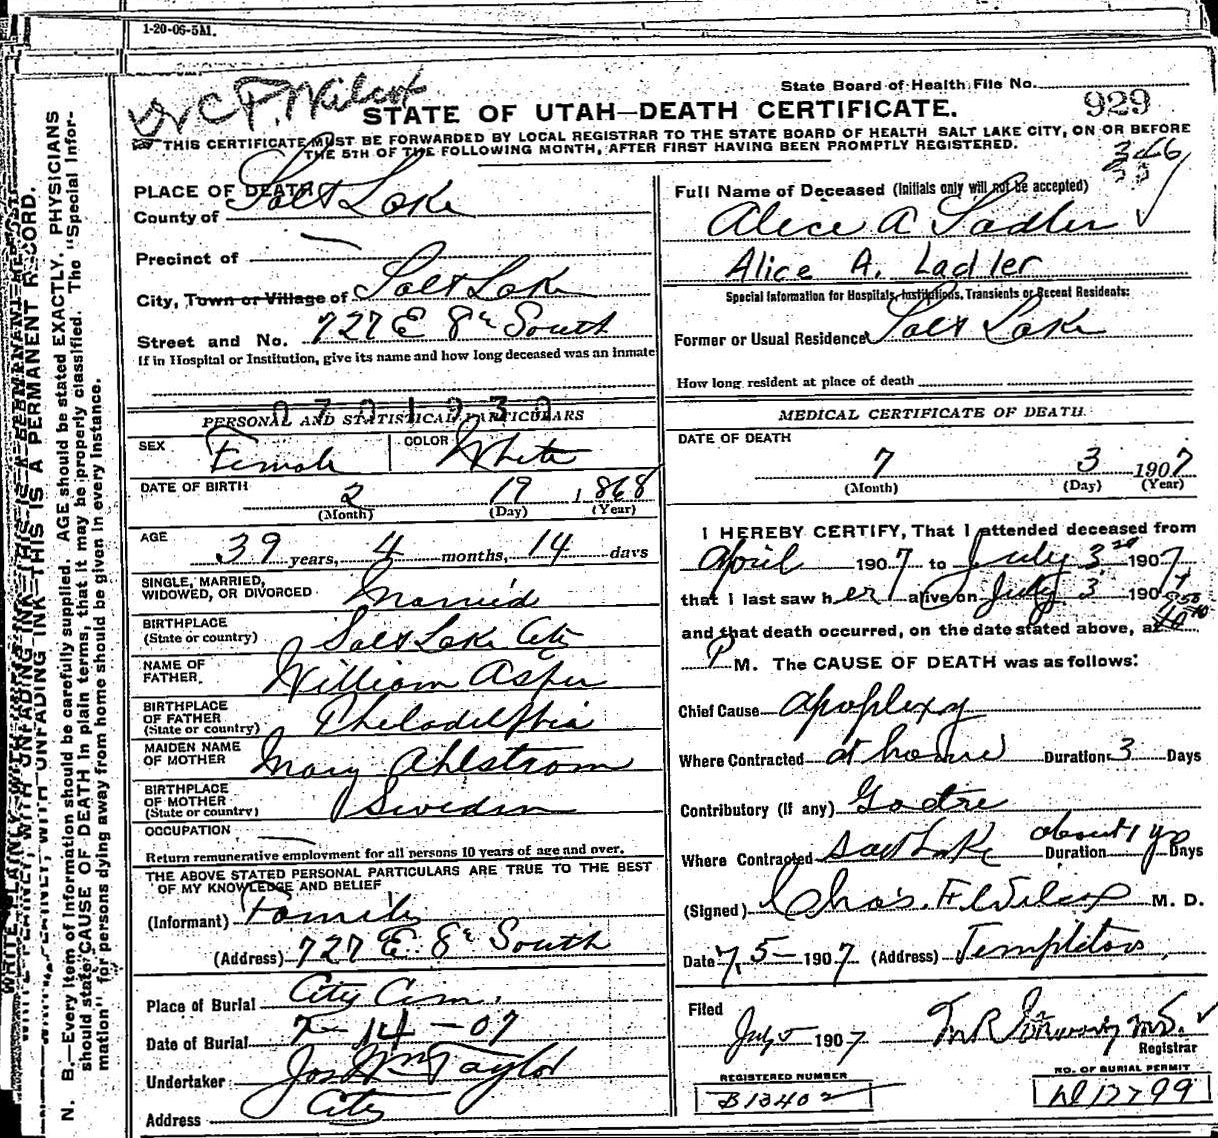 1-20-06-5M.
Dr C F. Wilcox
State Board of Health File No.
STATE OF UTAH—DEATH CERTIFICATE.
929
THIS CERTIFICATE MUST BE FORWARDED BY LOCAL REGISTRAR TO THE STATE BOARD OF HEALTH SALT LAKE CITY, ON OR BEFORE
THE 5TH OF THE FOLLOWING MONTH, AFTER FIRST HAVING BEEN PROMPTLY REGISTERED.
346
WRITE PLAINLY, WITH UNFADING INK—THIS IS A PERMANENT RECORD.
N. B.—Every item of Information should be carefully supplied. AGE should be stated EXACTLY. PHYSICIANS
should state CAUSE OF DEATH in plain terms, that it may be properly classified. The "Special Infor-
mation" for persons dying away from home should be given in every instance.
PLACE OF DEATH
County of Salt Lake
Precinct of
City, Town or Village of Salt Lake
Street and No. 727 E 8th South
If in Hospital or Institution, give its name and how long deceased was an inmate
PERSONAL AND STATISTICAL PARTICULARS
SEX Female COLOR White
DATE OF BIRTH 2 19 1868
(Month) (Day) (Year)
AGE 39 years, 4 months, 14 days
SINGLE, MARRIED,
WIDOWED, OR DIVORCED Married
BIRTHPLACE
(State or country) Salt Lake City
NAME OF
FATHER. William Asper
BIRTHPLACE
OF FATHER
(State or country) Philadelphia
MAIDEN NAME
OF MOTHER Mary Ahlstrom
BIRTHPLACE
OF MOTHER
(State or country) Sweden
OCCUPATION
Return remunerative employment for all persons 10 years of age and over.
THE ABOVE STATED PERSONAL PARTICULARS ARE TRUE TO THE BEST
OF MY KNOWLEDGE AND BELIEF
(Informant) Family
(Address) 727 E 8th South
Place of Burial City Cem.
Date of Burial 7-14-07
Undertaker Jos Wm Taylor
Address City
Full Name of Deceased (Initials only will not be accepted)
Alice A Sadler
Alice A. Ladler
Special Information for Hospitals, Institutions, Transients or Recent Residents:
Former or Usual Residence Salt Lake
How long resident at place of death
MEDICAL CERTIFICATE OF DEATH.
DATE OF DEATH
7 3 1907
(Month) (Day) (Year)
I HEREBY CERTIFY, That I attended deceased from
April 1907 to July 3rd 1907
that I last saw her alive on July 3 1907
and that death occurred, on the date stated above, at
P M. The CAUSE OF DEATH was as follows:
Chief Cause Apoplexy
Where Contracted at home Duration 3 Days
Contributory (if any) Goitre
Where Contracted Salt Lake Duration about 1 yr Days
(Signed) Chas. F. Wilcox M. D.
Date 7, 5- 1907 (Address) Templeton
Filed
July 5 1907
Registrar
REGISTERED NUMBER
B13402
NO. OF BURIAL PERMIT
D12799